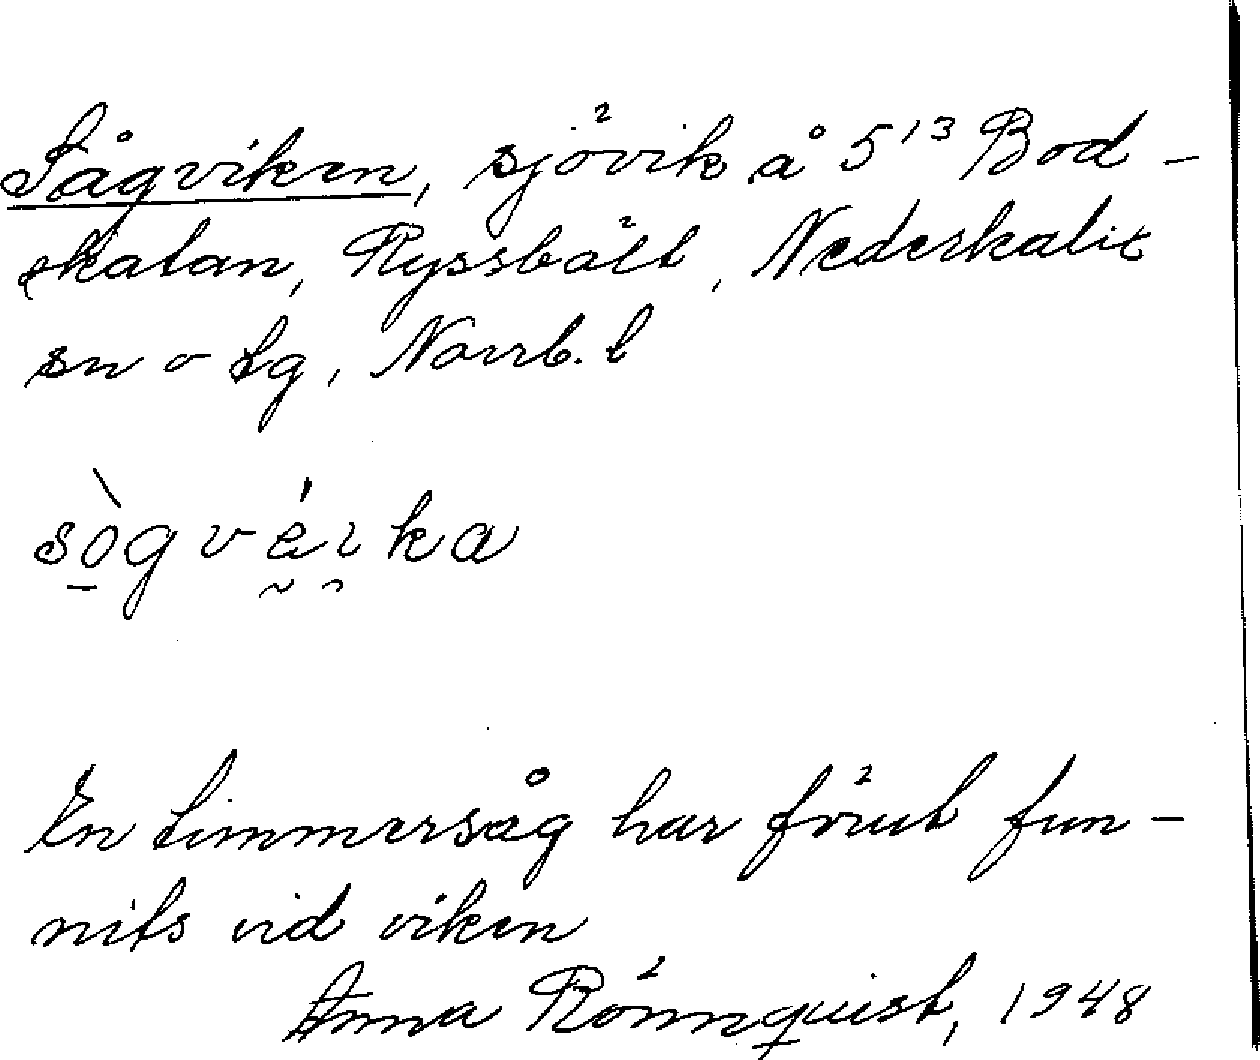 Sågviken, sjövik å 5¹³ Bod-
skatan, Ryssbält, Nederkalix
sn o tg, Norrb. l
sògvéıka
En timmersåg har förut fun-
nits vid viken
Anna Rönnquist, 1948